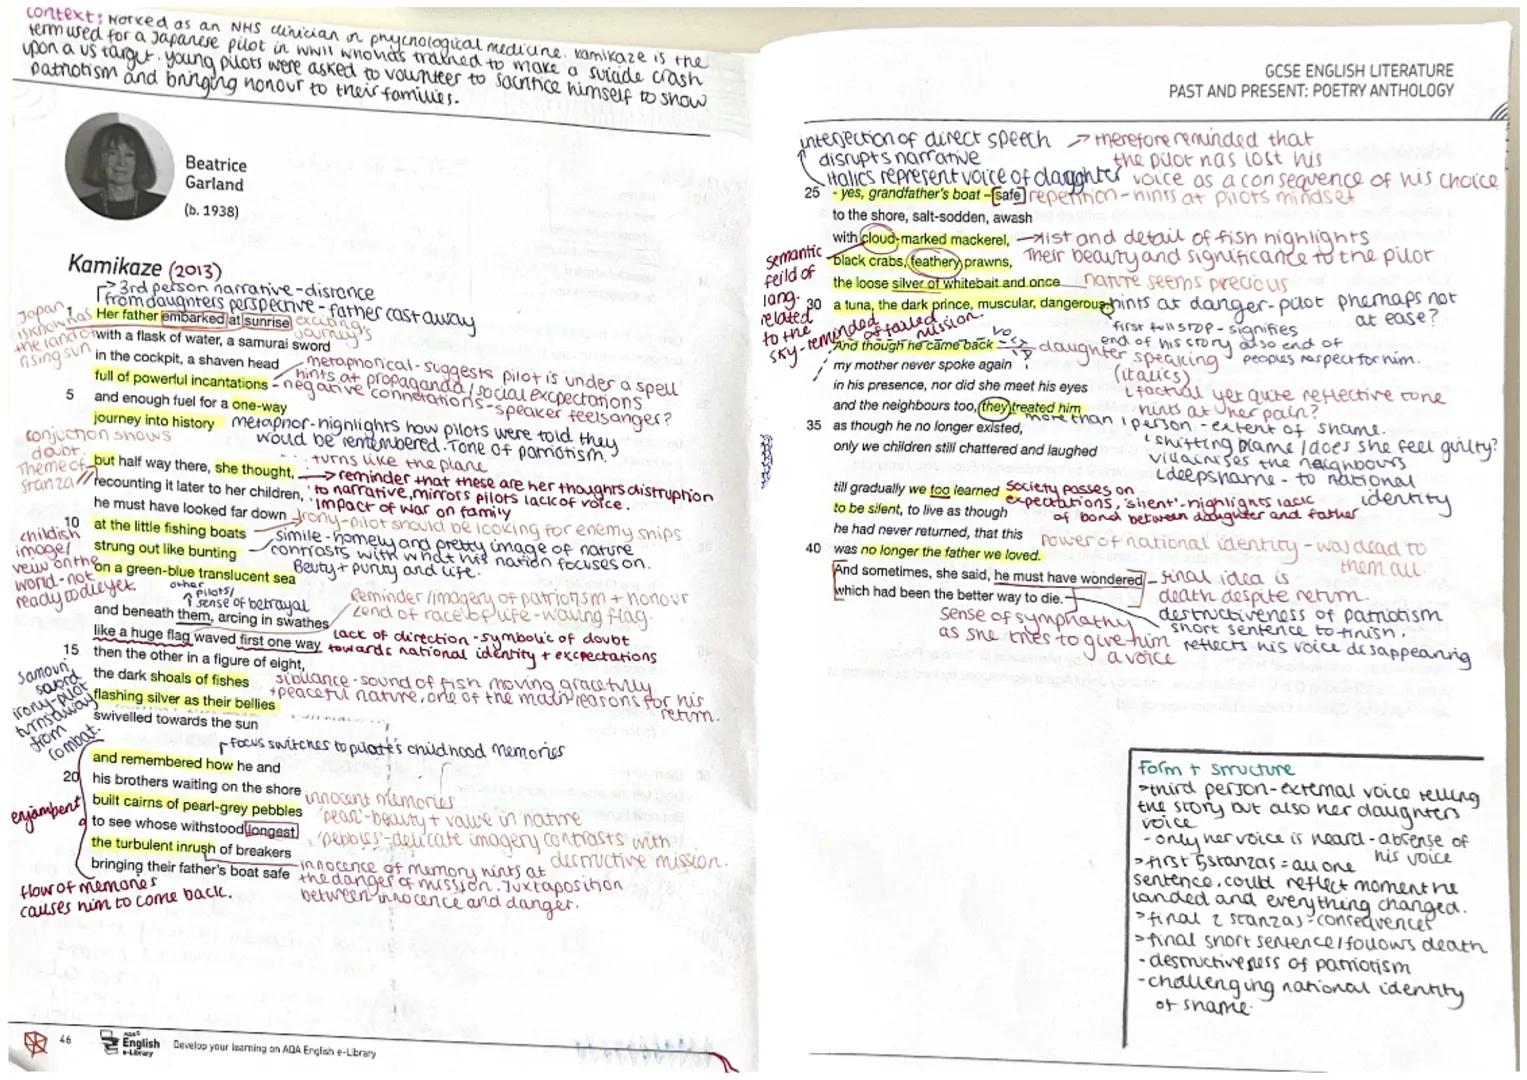 context: Worked as an NHS clinician in phycnological medicine. Kamikaze is the
term used for a Japanese pilot in WWII who was trained to make a suicide crash
upon a US target. young pilots were asked to volunteer to sacrifice himself to show
patriotism and bringing honour to their families.
Beatrice
Garland
(b. 1938)
Kamikaze (2013)
3rd person narrative - distance
from daughters perspective - father cast away
Japan
is known as
the land of
rising sun
1 Her father embarked at sunrise exciting journey's
with a flask of water, a samurai sword
in the cockpit, a shaven head
full of powerful incantations
metaphorical - suggests pilot is under a spell
hints at propaganda / social expectations
- negative connotations - speaker feels anger?
5 and enough fuel for a one-way
journey into history
metaphor - highlights how pilots were told they
would be remembered. Tone of patriotism.
conjuction shows
doubt.
Theme of
stanza
turns like the plane
but half way there, she thought,
→ reminder that these are her thoughts distruption
recounting it later to her children,
to narrative, mirrors pilots lack of voice.
he must have looked far down
impact of war on family
Irony - pilot should be looking for enemy ships
10 at the little fishing boats
strung out like bunting
on a green-blue translucent sea
childish
image/
veiw on the
world - not
ready to die yet.
simile - homely and pretty image of nature
contrasts with what his nation focuses on.
Beuty + purity and life.
other
pilots/
sense of betrayal
and beneath them, arcing in swathes
like a huge flag waved first one way
Reminder / imagery of patriotism + honour
end of race of life - waving flag.
lack of direction - symbolic of doubt
towards national identity + excpectations
15 then the other in a figure of eight,
the dark shoals of fishes
flashing silver as their bellies
swivelled towards the sun
samouri
sword
irony - pilot
turns away
from
combat.
sibilance - sound of fish moving gracefully
+ peaceful nature, one of the main reasons for his
return.
focus switches to pilate's childhood memories
and remembered how he and
20 his brothers waiting on the shore
built cairns of pearl-grey pebbles
to see whose withstood longest
the turbulent inrush of breakers
bringing their father's boat safe
enjambent
innocent memories
'pearl' - beauty + value in nature
'pebbles' - delicate imagery contrasts with
destructive mission.
innocence of memory hints at
the danger of mission. Juxtaposition
between innocence and danger.
flow of memories
causes him to come back.
46
AQA
English
e-Library
Develop your learning on AQA English e-Library
GCSE ENGLISH LITERATURE
PAST AND PRESENT: POETRY ANTHOLOGY
interjection of direct speech → therefore reminded that
disrupts narrative
the pilot has lost his
italics represent voice of daughter
voice as a consequence of his choice
25 - yes, grandfather's boat – safe
repetition - hints at pilots mindset
to the shore, salt-sodden, awash
with cloud-marked mackerel,
black crabs, feathery prawns,
the loose silver of whitebait and once
30 a tuna, the dark prince, muscular, dangerous.
→ list and detail of fish highlights
their beauty and significance to the pilot
nature seems precious
hints at danger - pilot pherhaps not
at ease?
semantic
feild of
lang.
related
to the
sky - reminded of failed mission.
first full stop - signifies
end of his story also end of
peoples respect for him.
And though he came back
my mother never spoke again
in his presence, nor did she meet his eyes
and the neighbours too, they treated him
35 as though he no longer existed,
only we children still chattered and laughed
daughter speaking
(italics)
factual yet quite reflective tone
hints at her pain?
more than 1 person - extent of shame.
shifting blame / does she feel guilty?
villacnises the neighbours
deep shame - to national
identity
till gradually we too learned
to be silent, to live as though
he had never returned, that this
40 was no longer the father we loved.
And sometimes, she said, he must have wondered
which had been the better way to die.
society passes on
expectations, 'silent' - highlights lack
of bond between daughter and father
power of national identity - was dead to
them all.
- final idea is
death despite return.
destructiveness of patriotism
short sentence to finish.
reflects his voice dissappearing
sense of symphathy
as she tries to give him
a voice
Form + structure
> third person - external voice telling
the story but also her daughters
voice
- only her voice is heard - absense of
his voice
> first 5 stanzas = all one
sentence. could reflect moment he
landed and everything changed.
> final 2 stanzas = consequences
> final short sentence / follows death
- destructiveness of patriotism
- challenging national identity
of shame.